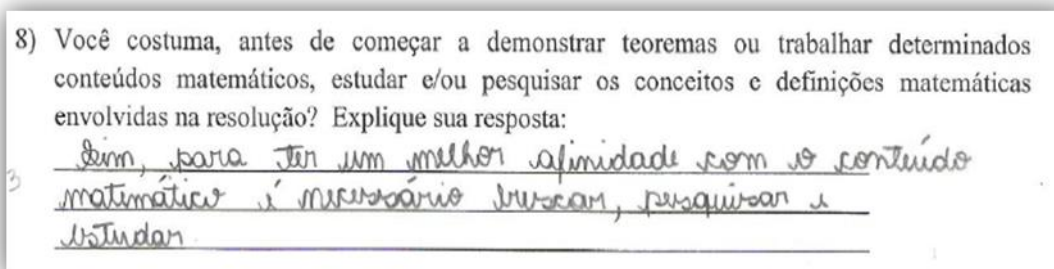 8) Você costuma, antes de começar a demonstrar teoremas ou trabalhar determinados
conteúdos matemáticos, estudar e/ou pesquisar os conceitos e definições matemáticas
envolvidas na resolução? Explique sua resposta:
Sim, para ter um melhor afinidade com o conteúdo
3
matimático é necessário buscar, pesquisar e
estudar